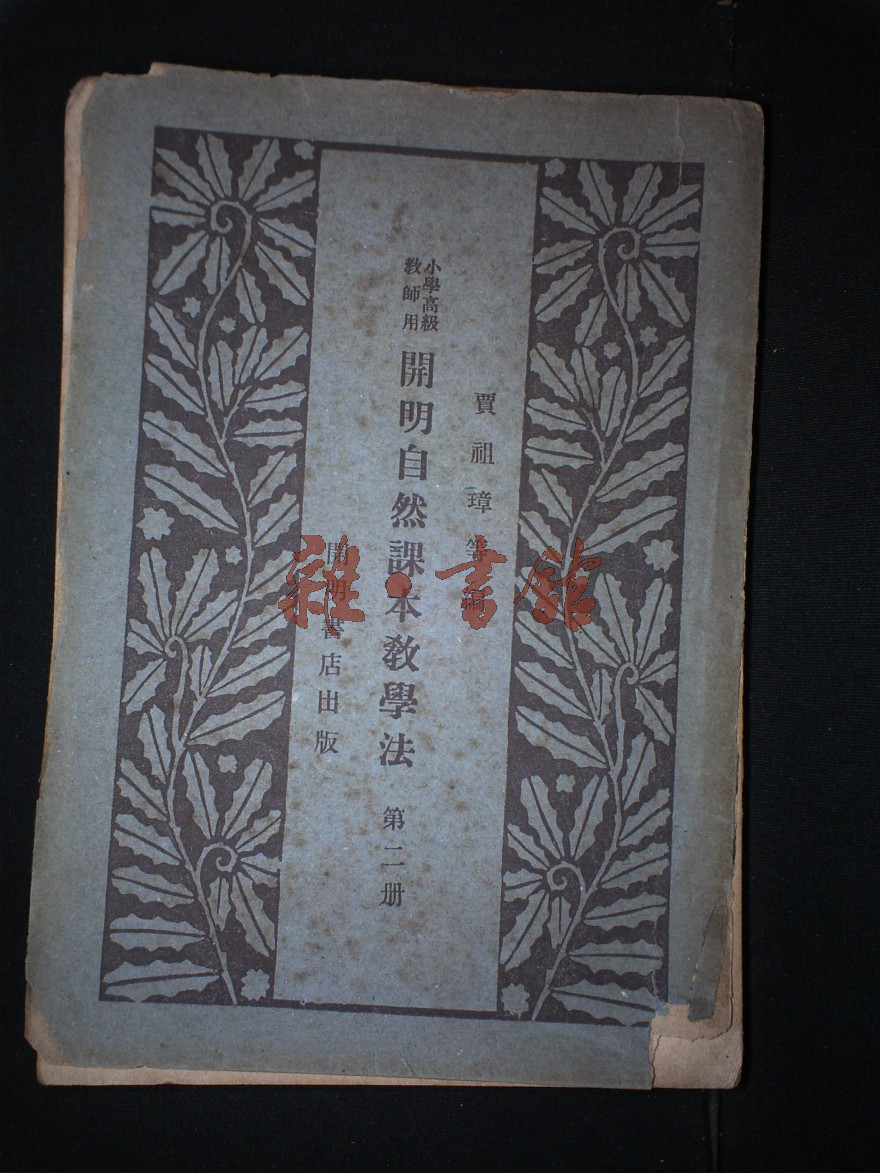 賈祖璋等編
小學高級
教師用
開明自然課本教學法 第二册
開明書店出版
雜·書館